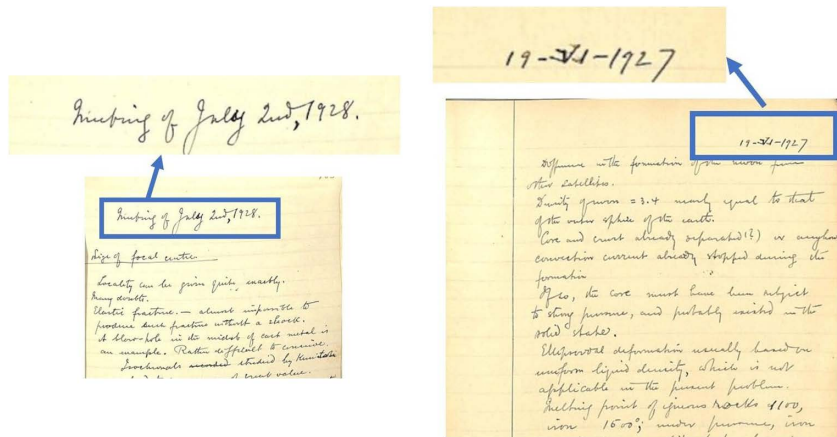 Meeting of July 2nd, 1928.
Meeting of July 2nd, 1928.
Size of focal centre
Locality can be given quite exactly.
Many doubts.
Elastic fracture. — almost impossible to
produce sure fracture without a shock.
A blow-hole in the midst of cast metal is
an example. Rather difficult to conceive.
Isochemals recorded studied by
of great value.
19-VI-1927
19-VI-1927
Difference in the formation of the moon from
other satellites.
Density of moon = 3.4 nearly equal to that
of the outer sphere of the earth.
Core and crust already separated (?) or
convection current already stopped during the
formation
If so, the core must have been subject
to strong pressure, and probably existed in the
solid state.
Ellipsoidal deformation usually based on
uniform liquid density, which is not
applicable in the present problem.
Melting point of igneous rocks 1100,
iron 1600°; under pressure, iron